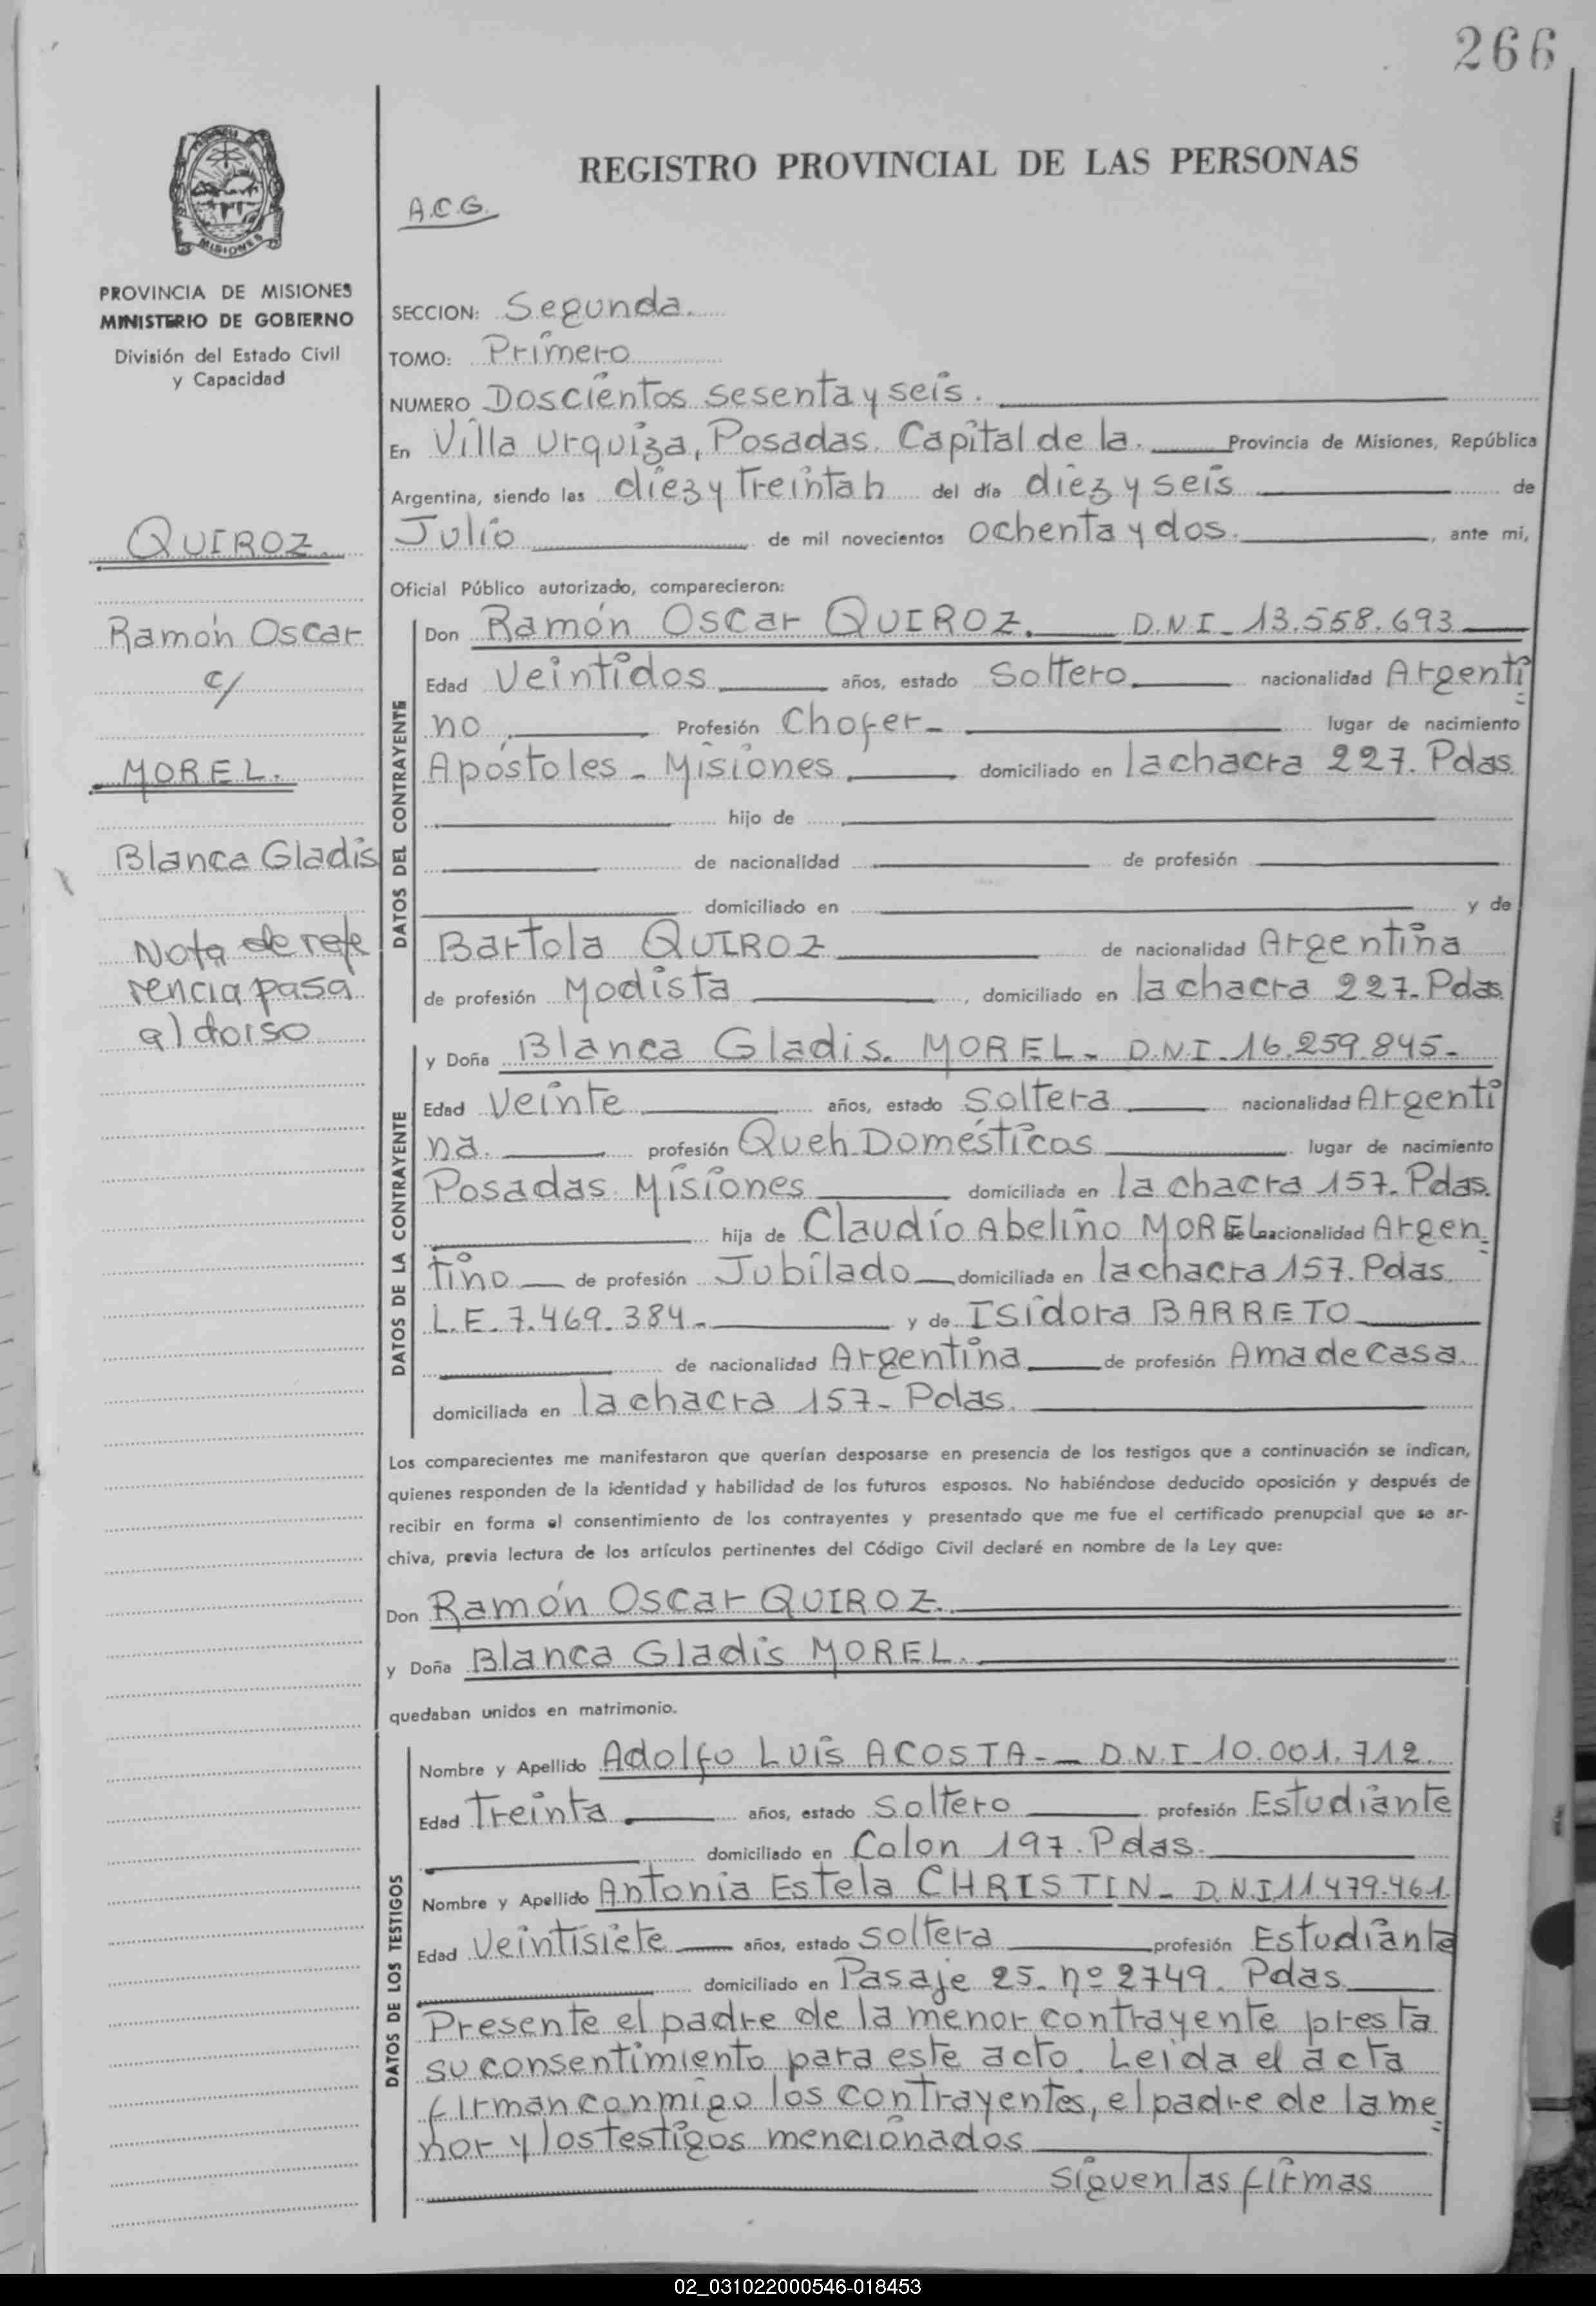 266
REGISTRO PROVINCIAL DE LAS PERSONAS
A.C.G.
MISIONES
PROVINCIA DE MISIONES
MINISTERIO DE GOBIERNO
División del Estado Civil
y Capacidad
QUIROZ.
Ramón Oscar
c/
MOREL.
Blanca Gladis
Nota de refe
rencia pasa
al dorso
SECCION: Segunda.
TOMO: Primero
NUMERO Doscientos sesenta y seis.
En Villa Urquiza, Posadas. Capital de la. Provincia de Misiones, República
Argentina, siendo las diez y treinta h del día diez y seis de
Julio de mil novecientos ochenta y dos. , ante mi,
Oficial Público autorizado, comparecieron:
DATOS DEL CONTRAYENTE
Don Ramón Oscar QUIROZ. D.N.I_ 13.558.693
Edad Veintidos años, estado Soltero. nacionalidad Argenti
no . Profesión Chofer- lugar de nacimiento
Apóstoles - Misiones domiciliado en la chacra 227. Pdas.
hijo de
de nacionalidad de profesión
domiciliado en y de
Bartola QUIROZ de nacionalidad Argentina
de profesión Modista , domiciliado en la chacra 227-Pdas
DATOS DE LA CONTRAYENTE
y Doña Blanca Gladis. MOREL- D.N.I_16.259.845-
Edad Veinte años, estado Soltera nacionalidad Argenti
na. profesión Queh.Domésticos lugar de nacimiento
Posadas. Misiones domiciliada en la chacra 157. Pdas.
hija de Claudio Abelino MOREL de nacionalidad Argen
tino de profesión Jubilado domiciliada en la chacra 157. Pdas.
L.E. 7.469.384- y de Isidora BARRETO
de nacionalidad Argentina de profesión Ama de casa.
domiciliada en la chacra 157- Pdas.
Los comparecientes me manifestaron que querían desposarse en presencia de los testigos que a continuación se indican,
quienes responden de la identidad y habilidad de los futuros esposos. No habiéndose deducido oposición y después de
recibir en forma el consentimiento de los contrayentes y presentado que me fue el certificado prenupcial que se ar-
chiva, previa lectura de los artículos pertinentes del Código Civil declaré en nombre de la Ley que:
Don Ramón Oscar QUIROZ.
y Doña Blanca Gladis MOREL.
quedaban unidos en matrimonio.
DATOS DE LOS TESTIGOS
Nombre y Apellido Adolfo Luis ACOSTA-- D.N.I_10.001.712.
Edad Treinta años, estado Soltero profesión Estudiante
domiciliado en Colon 197. Pdas.
Nombre y Apellido Antonia Estela CHRISTIN- D.N.I 11.479.461.
Edad Veintisiete años, estado Soltera profesión Estudiante
domiciliado en Pasaje 25_ nº 2749. Pdas
Presente el padre de la menor contrayente presta
su consentimiento para este acto. Leida el acta
firman conmigo los contrayentes, el padre de la me
nor y los testigos mencionados
Siguen las firmas
02_031022000546-018453